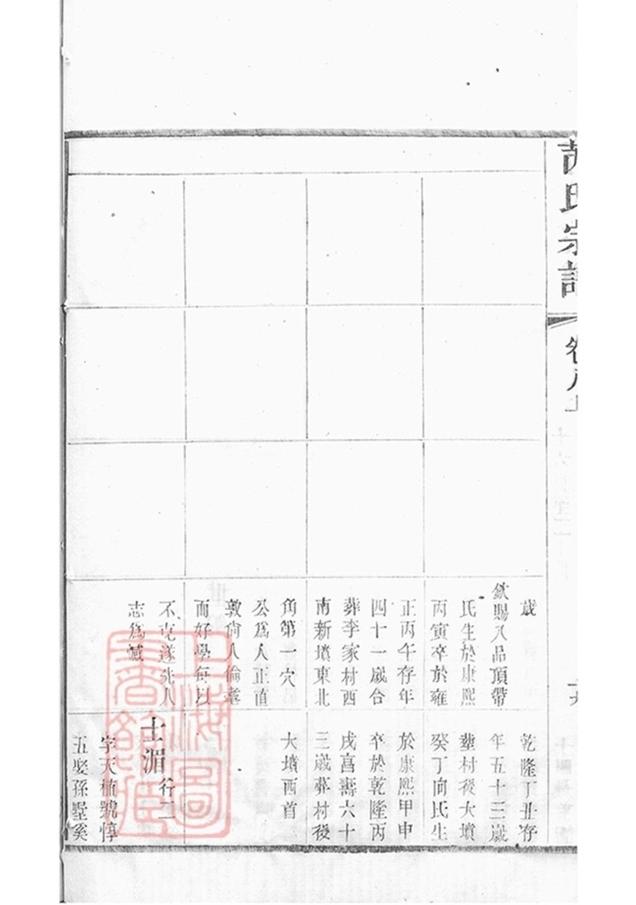 胡氏宗譜
卷八上
歲
欽賜八品頂帶
氏生於康熙
丙寅卒於雍
正丙午存年
四十一歲合
葬李家村西
南新墳東北
角第一穴
公為人正直
敦尚人倫辜
而好學每以
不克遂先人
志為憾
乾隆丁丑存
年五十三歲
葬村後大墳
癸丁向氏生
於康熙甲申
卒於乾隆丙
戌畗壽六十
三歲葬村後
大墳西首
士湄行二
字天楠號惇
五娶孫墅奚
上海圖書館藏